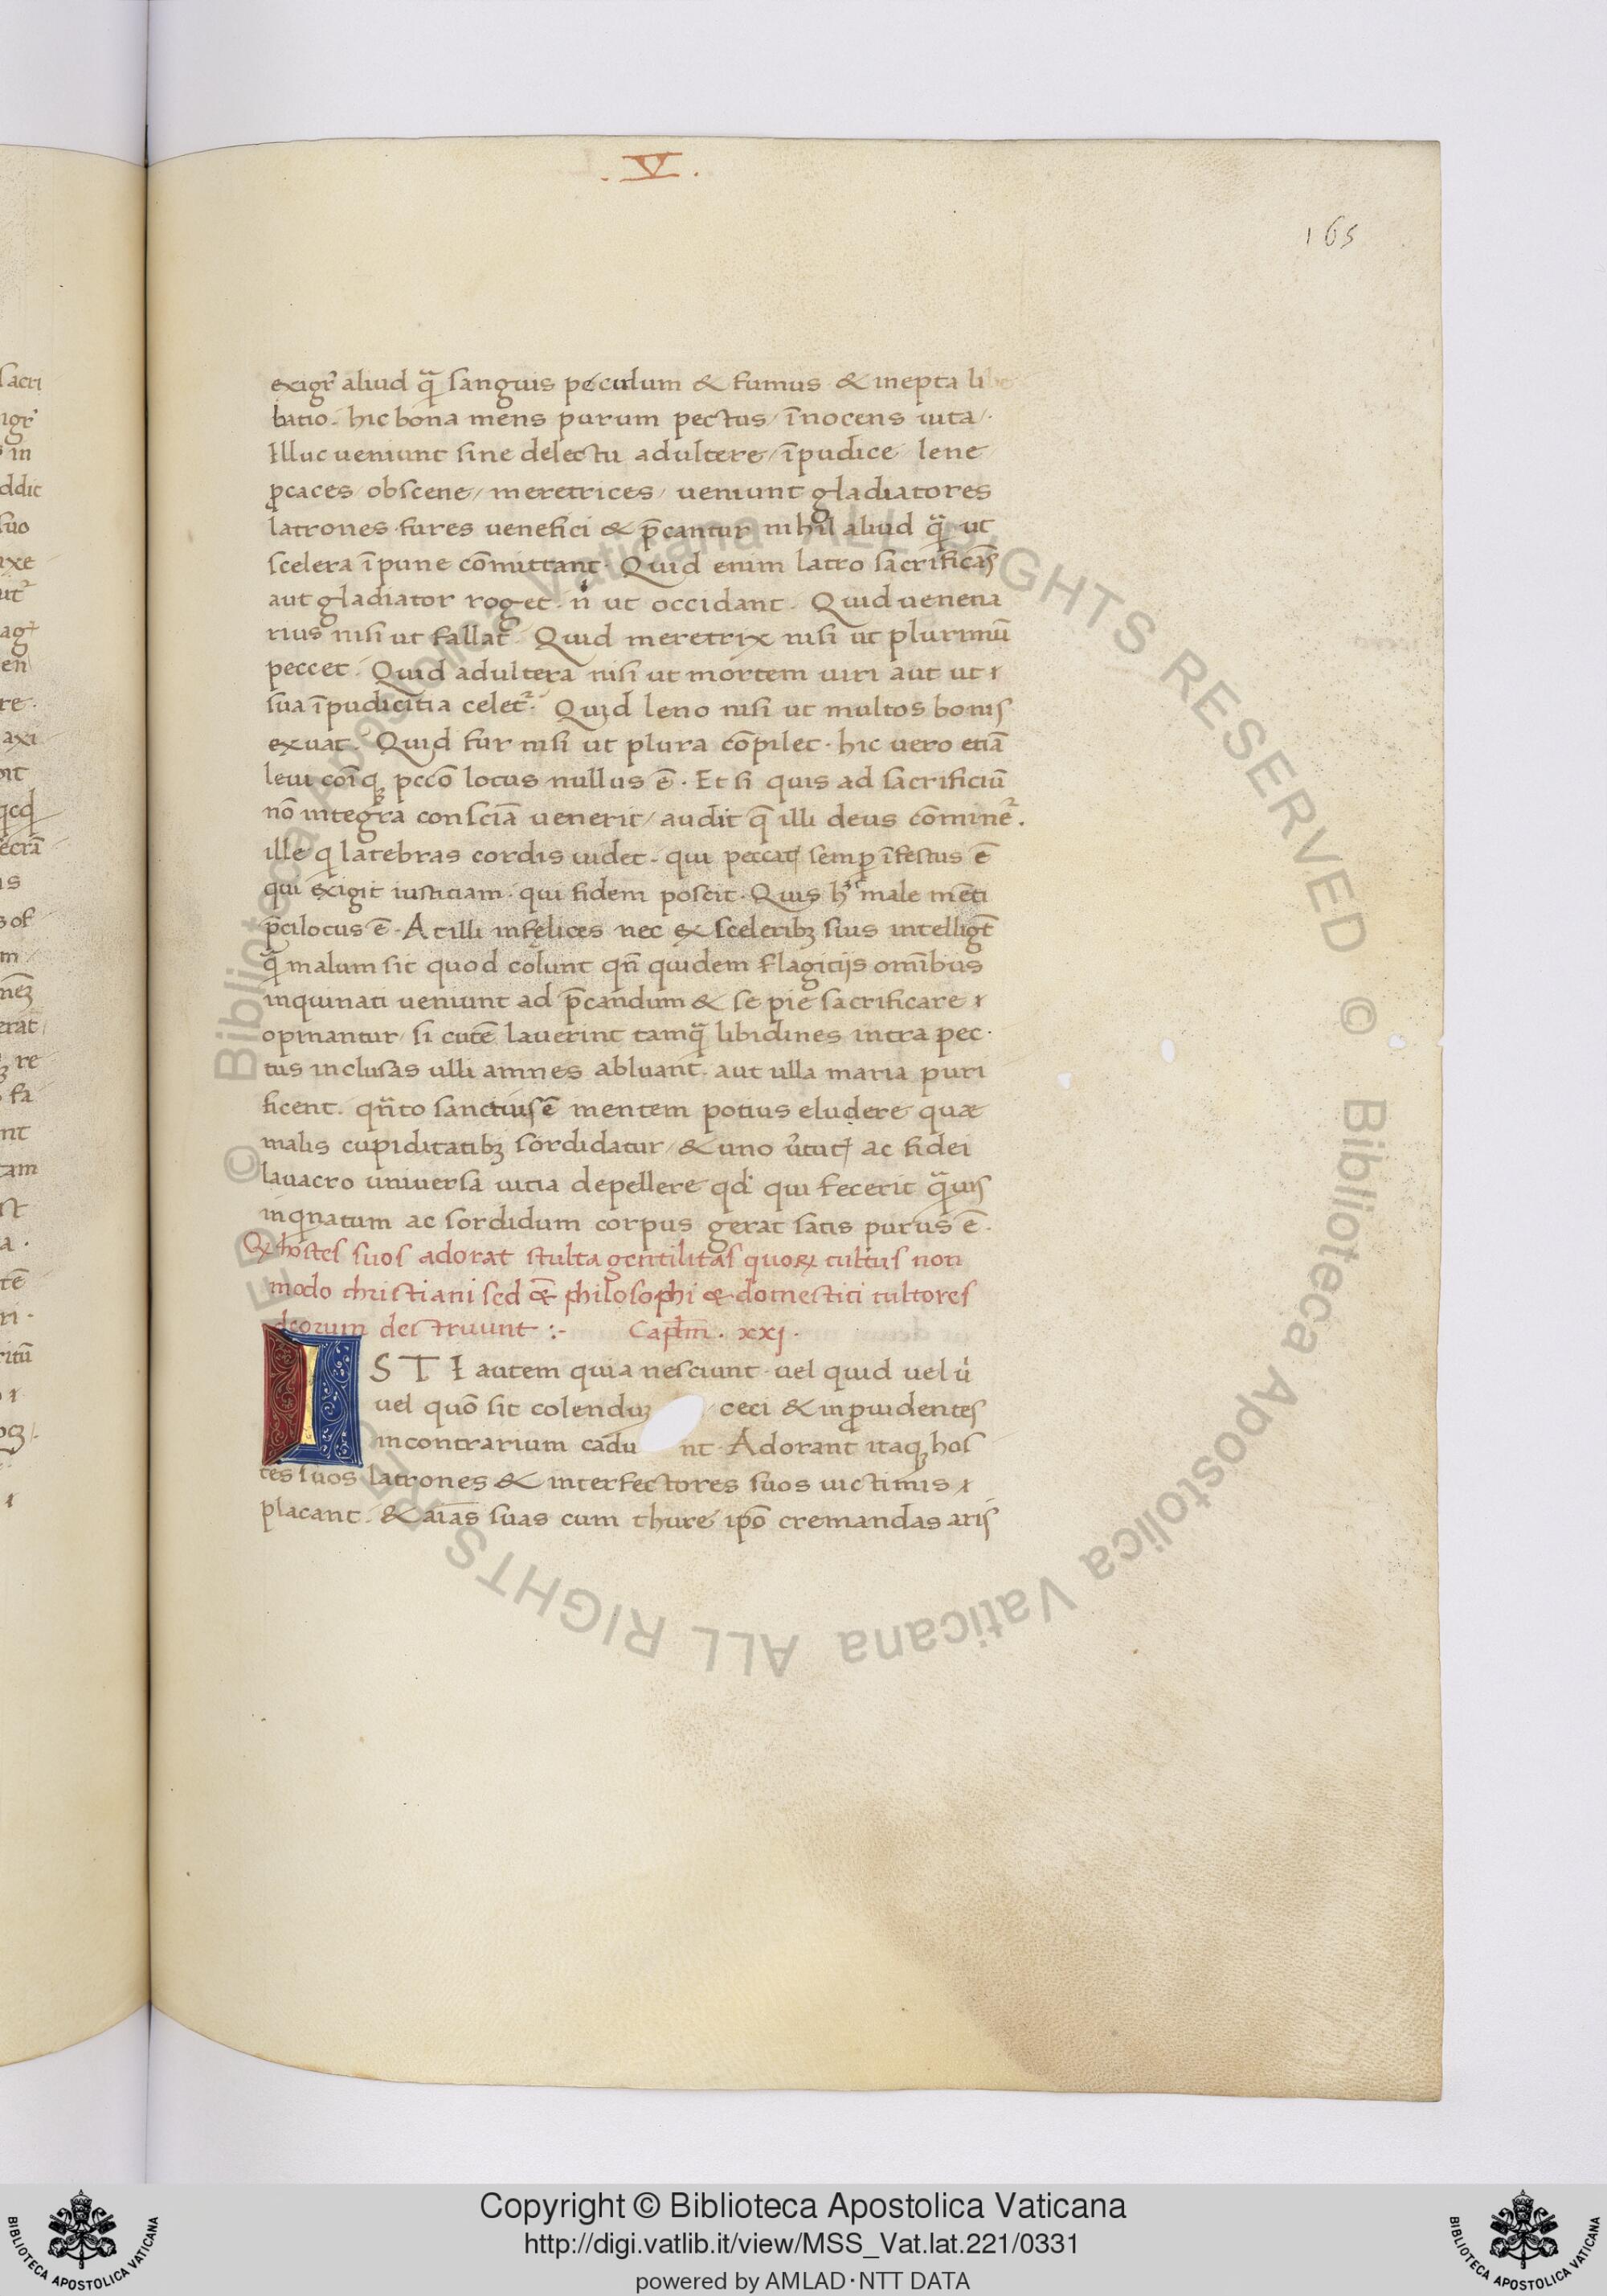 .V.
165
exigr̃ aliud q̃ sanguis peculum & fumus & inepta li
batio. hic bona mens purum pectus/ ĩnocens uita/.
Illuc ueniunt sine delectu adultere/ ĩpudice lene
ꝓcaces/ obscene/ meretrices/ ueniunt gladiatores
latrones fures uenefici & p̃cantur nihil aliud q̃ ut
scelera ĩpune cõmittant. Quid enim latro sacrificãs
aut gladiator roget. n̉ ut occidant. Quid uenena
rius nisi ut fallat. Quid meretrix nisi ut plurimũ
peccet. Quid adultera nisi ut mortem uiri aut ut
sua ĩpudicitia celet᷑. Quid leno nisi ut multos bonis
exuat. Quid fur nisi ut plura cõpilet. hic uero etiã
leui coĩqꝫ pccõ locus nullus ẽ. Et si quis ad sacrificiũ
nõ integra consciã uenerit/ audit q̃ illi deus cõminet᷑.
ille q latebras cordis uidet. qui peccatꝭ semꝑ ĩfestus ẽ
qui exigit iustitiam. qui fidem poscit. Quis h̉ male mẽti
p̃cilocus ẽ. At illi infęlices nec ex sceleribꝫ suis intelligt̃
q̃ malum sit quod colunt qñ quidem flagitijs omĩbus
inquinati ueniunt ad p̃candum & se pie sacrificare
opinantur/ si cutẽ lauerint tamq̃ libidines intra pec.
tus inclusas ulli amnes abluant. aut ulla maria puri
ficent. qñto sanctius ẽ mentem potius eludere quæ
malis cupiditatibꝫ sordidatur/ & uno ũtutꝭ ac fidei
lauacro uniuersa uitia depellere qd̉ qui fecerit q̃uis
inqnatum ac sordidum corpus gerat satis purus ẽ.
Qꝫ hostes suos adorat stulta gentilitas quoꝝ cultus non
modo christiani sed & philosophi & domestici cultores
deorum destruunt :- Capl̃m. xxj.
ISTI autem quia nesciunt. uel quid uel ũ
uel quõ sit colenduꝫ / ceci & inꝓuidentes
incontrarium cadu nt. Adorant itaqꝫ hos
tes suos latrones & interfectores suos uictimis
placant. & aĩas suas cum thure ip̃o cremandas aris
Copyright © Biblioteca Apostolica Vaticana
http://digi.vatlib.it/view/MSS_Vat.lat.221/0331
powered by AMLAD·NTT DATA
BIBLIOTECA APOSTOLICA VATICANA
BIBLIOTECA APOSTOLICA VATICANA
© Biblioteca Apostolica Vaticana ALL RIGHTS RESERVED
© Biblioteca Apostolica Vaticana ALL RIGHTS RESERVED